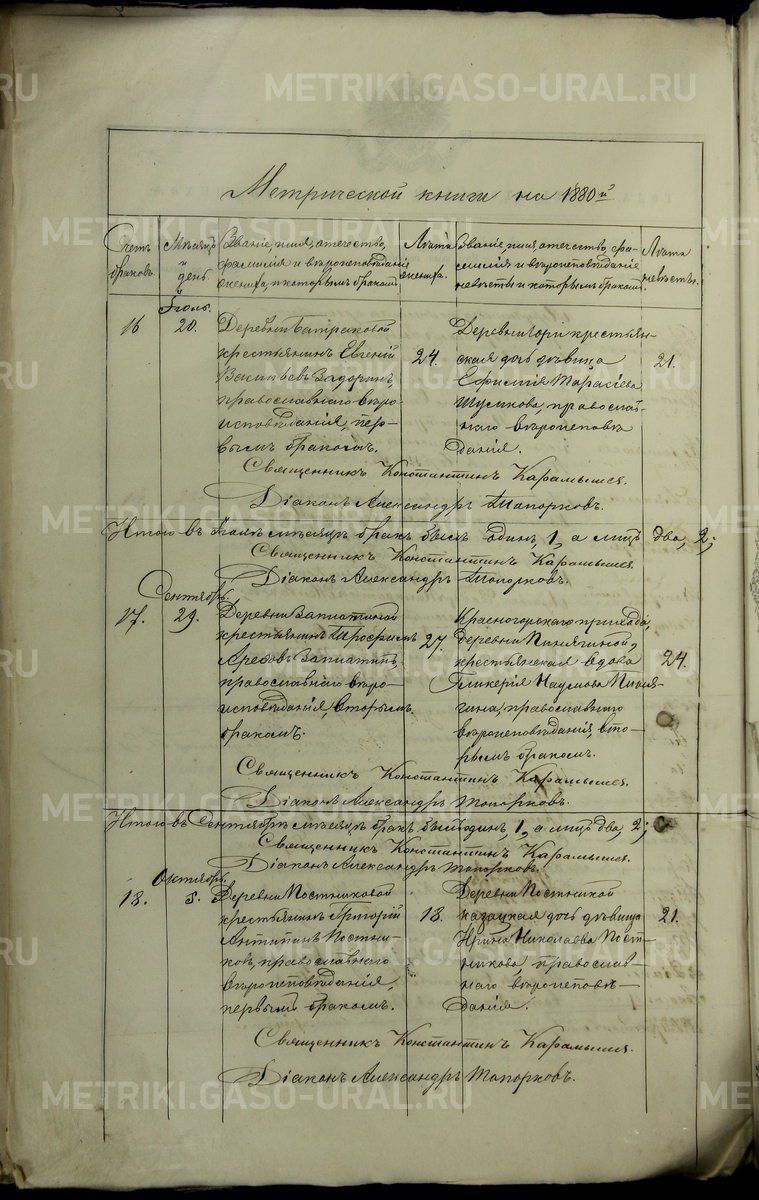 METRIKI.GASO-URAL.RU
Метрической книги на 1880 й
Счетъ браковъ.
Мѣсяцъ и день.
Званіе, имя, отечество,
фамилія и вѣроисповѣданіе
жениха, и которымъ бракомъ.
Лѣта жениха.
Званіе, имя, отечество, фа-
милія и вѣроисповѣданіе
невѣсты и которымъ бракомъ.
Лѣта невѣсты.
Іюль.
16
20.
Деревни Батраковой
крестьянинъ Евгеній
Васильевъ Задоринъ,
православнаго вѣро-
исповѣданія, пер-
вымъ бракомъ.
24.
Деревни крестьян-
ская дочь дѣвица
Ефимія Тарасіева
православ-
наго вѣроисповѣ
данія.
21.
Священникъ Константинъ Карамышев.
Діаконъ Александръ Топорковъ.
Итого въ Іюлѣ мѣсяцѣ бракъ былъ одинъ, 1, а лицъ два, 2;
Священникъ Константинъ Карамышев.
Діаконъ Александръ Топорковъ.
Сентябрь.
17.
29.
Деревни Запиатиной
крестьянинъ Трофимъ
Арефовъ
православнаго вѣро-
исповѣданія, вторымъ
бракомъ.
27.
Красногорскаго прихода,
деревни Пинягиной,
крестьянская вдова
Гликерія Наумова Пиня-
гина, православнаго
вѣроисповѣданія, вто-
рымъ бракомъ.
24.
Священникъ Константинъ Карамышев.
Діаконъ Александръ Топорковъ.
Итого въ Сентябрѣ мѣсяцѣ бракъ былъ одинъ, 1, а лицъ два, 2;
Священникъ Константинъ Карамышев.
Діаконъ Александръ Топорковъ.
Октябрь.
18.
5.
Деревни Постниковой
крестьянинъ Григорій
Антипинъ Постни-
ковъ, православнаго
вѣроисповѣданія,
первымъ бракомъ.
18.
Деревни Постникой
казацкая дочь дѣвица
Ирина Николаева Пост-
никова, православ-
наго вѣроисповѣ-
данія.
21.
Священникъ Константинъ Карамышев.
Діаконъ Александръ Топорковъ.